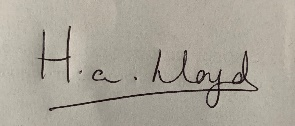 H. a. Lloyd